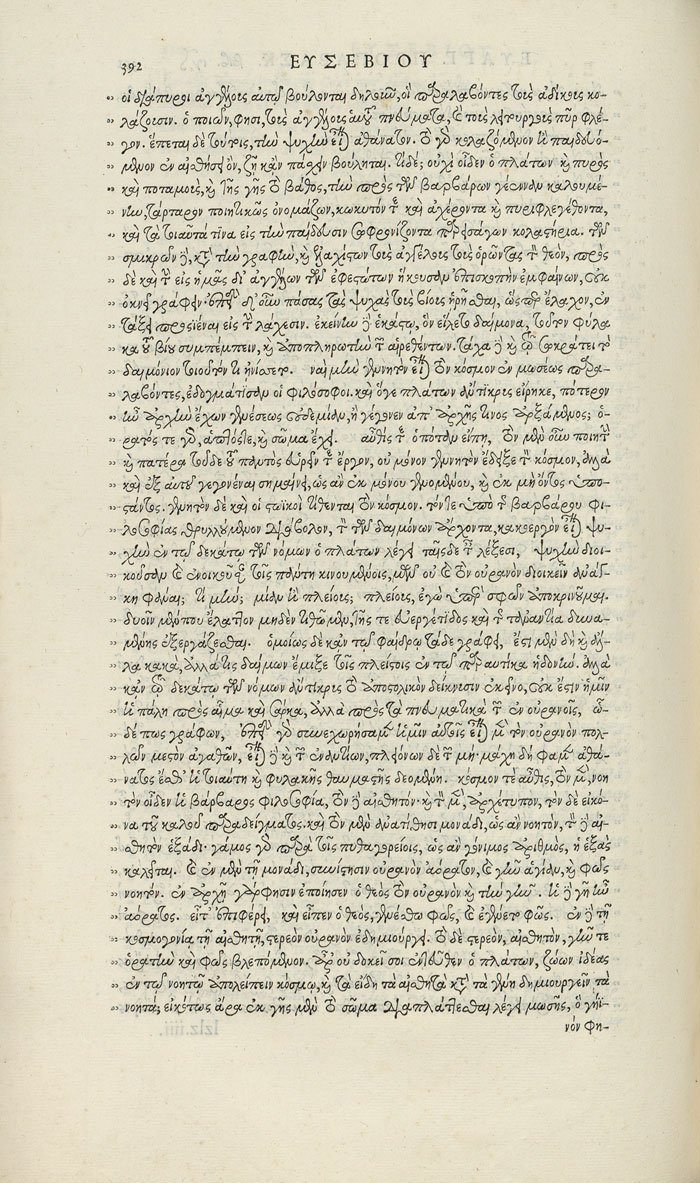 392 ΕΥΣΕΒΙΟΥ
οἱ διάπυροι ἀγγέλους αὐτοῦ βούλονται δηλοῦν, οἳ παραλαβόντες τοὺς ἀδίκους κο-
λάζουσιν. ὁ ποιῶν, φησι, τοὺς ἀγγέλους αὑτοῦ πνεύματα, καὶ τοὺς λειτουργοὺς πῦρ φλέ-
γον. ἕπεται δὲ τούτοις, τὴν ψυχὴν εἶναι ἀθάνατον. τὸ γὰρ κολαζόμενον ἢ παιδευό-
μενον ἐν αἰσθήσει ὂν, ζῆ κἂν πάσχειν βούληται. τί δέ; οὐχὶ οἶδεν ὁ πλάτων καὶ πυρὸς
καὶ ποταμοὺς, καὶ τῆς γῆς τὸ βάθος, τὴν πρὸς τῶν βαρβάρων γέενναν καλουμέ-
νην, τάρταρον ποιητικῶς ὀνομάζων, κωκυτόν τε καὶ ἀχέροντα καὶ πυριφλεγέθοντα,
καὶ τὰ τοιαῦτά τινα εἰς τὴν παίδευσιν σωφρονίζοντα παρεισάγων κολαστήρια. τῶν
σμικρῶν δὲ, κατὰ τὴν γραφὴν, καὶ ἐλαχίστων τοὺς ἀγγέλους τοὺς ὁρῶντας τὸν θεὸν, πρὸς
δὲ καὶ τὴν εἰς ἡμᾶς δι' ἀγγέλων τῶν ἐφεστώτων ἥκουσαν ἐπισκοπὴν ἐμφαίνων, οὐκ
ὀκνεῖ γράφειν· ἐπειδὴ δ' οὖν πάσας τὰς ψυχὰς τοὺς βίους ᾑρῆσθαι, ὥσπερ ἔλαχον, ἐν
τάξει προσιέναι εἰς τὴν λάχεσιν. ἐκείνην δὲ ἑκάστῳ, ὃν εἵλετο δαίμονα, τοῦτον φύλα
κα τοῦ βίου συμπέμπειν, καὶ ἀποπληρωτὴν τῶν αἱρεθέντων. τάχα δὲ καὶ τῷ σωκράτει τὸ
δαιμόνιον τοιοῦτόν τι ᾐνίσσετο. ναὶ μὴν γενητὸν εἶναι τὸν κόσμον ἐκ μωσέως παρα-
λαβόντες, ἐδογμάτισαν οἱ φιλόσοφοι. καὶ ὅ γε πλάτων ἄντικρις εἴρηκε, πότερον
ἦν ἀρχὴν ἔχων γενέσεως οὐδεμίαν, ἢ γέγονεν ἀπ' ἀρχῆς τινος ἀρξάμενος; ὁ-
ρατός τε γὰρ, ἁπτός τε, καὶ σῶμα ἔχει. αὖθίς τε ὁπόταν εἴπῃ, τὸν μὲν οὖν ποιητὴν
καὶ πατέρα τοῦδε τοῦ παντὸς εὑρεῖν τε ἔργον, οὐ μόνον γενητὸν ἔδειξε τὸν κόσμον, ἀλλὰ
καὶ ἐξ αὐτοῦ γεγονέναι σημαίνει, ὡς ἂν ἐκ μόνου γενομένου, καὶ ἐκ μὴ ὄντος ὑπο-
στάντος. γενητὸν δὲ καὶ οἱ στωϊκοὶ τίθενται τὸν κόσμον. τόν τε ὑπὸ τῆς βαρβάρου φι-
λοσοφίας θρυλλούμενον διάβολον, τὸν τῶν δαιμόνων ἄρχοντα, κακοεργὸν εἶναι ψυ-
χὴν ἐν τῷ δεκάτῳ τῶν νόμων ὁ πλάτων λέγει ταῖσδε ταῖς λέξεσι, ψυχὴν διοι-
κοῦσαν καὶ ἐνοικοῦσαν τοῖς πάντῃ κινουμένοις, μῶν οὐ καὶ τὸν οὐρανὸν διοικεῖν ἀνάγ-
κη φάναι; τί μήν; μίαν ἢ πλείους; πλείους, ἐγὼ ὑπὲρ σφῶν ἀποκρινοῦμαι.
δυοῖν μέν που ἔλαττον μηδὲν τιθῶμεν, τῆς τε εὐεργέτιδος καὶ τῆς τἀναντία δυνα-
μένης ἐξεργάζεσθαι. ὁμοίως δὲ κἀν τῷ φαίδρῳ τάδε γράφει, ἔστι μὲν δὴ καὶ ἄλ-
λα κακὰ, ἀλλά τις δαίμων ἔμιξε τοῖς πλείστοις ἐν τῷ παραυτίκα ἡδονήν. ἀλλὰ
κἀν τῷ δεκάτῳ τῶν νόμων ἄντικρις τὸ ἀποστολικὸν δείκνυσιν ἐκεῖνο, οὐκ ἔστιν ἡμῖν
ἡ πάλη πρὸς αἷμα καὶ σάρκα, ἀλλὰ πρὸς τὰ πνευματικὰ τῶν ἐν οὐρανοῖς, ὧ-
δέ πως γράφων, ἐπειδὴ γὰρ συνεχωρήσαμεν ἡμῖν αὐτοῖς εἶναι μὲν τὸν οὐρανὸν πολ-
λῶν μεστὸν ἀγαθῶν, εἶναι δὲ καὶ τῶν ἐναντίων, πλειόνων δὲ τῶν μή· μάχη δή φαμεν ἀθά-
νατός ἐσθ' ἡ τοιαύτη καὶ φυλακῆς θαυμαστῆς δεομένη. κόσμον τε αὖθις, τὸν μὲν, νοη
τὸν οἶδεν ἡ βάρβαρος φιλοσοφία, τὸν δὲ αἰσθητόν· καὶ τὸν μὲν, ἀρχέτυπον, τὸν δὲ εἰκό-
να τοῦ καλοῦ παραδείγματος. καὶ τὸν μὲν ἀνατίθησι μονάδι, ὡς ἂν νοητὸν, τὸν δὲ αἰ-
σθητὸν ἑξάδι· γάμος γὰρ παρὰ τοῖς πυθαγορείοις, ὡς ἂν γόνιμος ἀριθμὸς, ἡ ἑξὰς
καλεῖται. καὶ ἐν μὲν τῇ μονάδι, συνίστησιν οὐρανὸν ἀόρατον, καὶ γῆν ἀειδῆ, καὶ φῶς
νοητόν. ἐν ἀρχῇ γάρ φησιν ἐποίησεν ὁ θεὸς τὸν οὐρανὸν καὶ τὴν γῆν. ἡ δὲ γῆ ἦν
ἀόρατος. εἶτ' ἐπιφέρει, καὶ εἶπεν ὁ θεὸς, γενέσθω φῶς, καὶ ἐγένετο φῶς. ἐν δὲ τῇ
κοσμογονίᾳ τῇ αἰσθητῇ, στερεὸν οὐρανὸν ἐδημιούργει. τὸ δὲ στερεὸν, αἰσθητόν, γῆν τε
ὁρατὴν καὶ φῶς βλεπόμενον. ἆρ' οὐ δοκεῖ σοι ἐντεῦθεν ὁ πλάτων, ζώων ἰδέας
ἐν τῷ νοητῷ ἀπολείπειν κόσμῳ, καὶ τὰ εἴδη τὰ αἰσθητὰ κατὰ τὰ γένη δημιουργεῖν τὰ
νοητά; εἰκότως ἄρα ἐκ γῆς μὲν τὸ σῶμα διαπλάττεσθαι λέγει μωσῆς, ὃ γήϊ-
νόν φη-